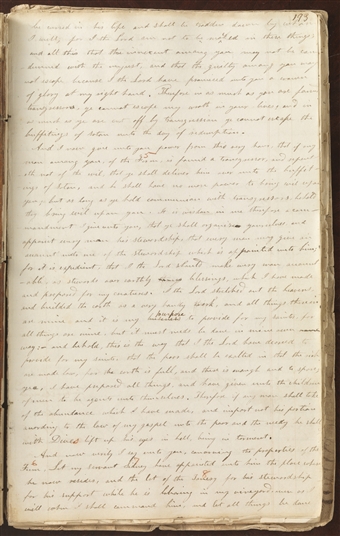 173
be cursed in his life, and shall be trodden down by whom
I will; for I the Lord am not to be mocked in these things
and all this that the innocent among you may not be con
demned with the unjust, and that the guilty among you may
not escape because I the Lord have promised unto you a crown
of glory at my right hand. Therefore in as much as you are found
transgressors, ye cannot escape my wrath in your lives, and in
as much as ye are cut off by transgression ye cannot escape the
buffetings of satan unto the day of redemption.
And I now give unto you power from this very hour, that if any
man among you, of the Firm, is found a transgressor, and repent
eth not of the evil, that ye shall deliver him over unto the buffet
ings of satan, and he shall have no more power to bring evil upon
you; but as long as ye hold communion with transgressors, behold
they bring evil upon you. It is wisdom in me therefore a com
mandment I give unto you, that ye shall organize yourselves and
appoint every man his stewardship, that every man may give an
account unto me of the stewardship which is appointed unto him;
for it is expedient, that I the Lord should make every man account
able, as stewards over earthly blessings, which I have made
and prepared for my creatures. I the Lord stretched out the heavens,
and builded the earth as a very handy work, and all things therein
are mine, and it is my purpose to provide for my saints, for
all things are mine; but it must needs be done in mine own
way; and behold, this is the way, that I the Lord have decreed to
provide for my saints, that the poor shall be exalted in that the rich
are made low; for the earth is full, and there is enough and to spare,
yea, I have prepared all things, and have given unto the children
of men to be agents unto themselves. Therefore if any man shall take
of the abundance which I have made, and impart not his portion
according to the law of my gospel unto the poor and the needy he shall
with Dives lift up his eyes in hell, being in torment.
And now verily I say unto you, concerning the properties of the
Firm. Let my servant Sidney have appointed unto him the place where
he now resides, and the lot of the Tannery for his stewardship
for his support while he is laboring in my vineyard, even as I
will when I shall command him; and let all things be done